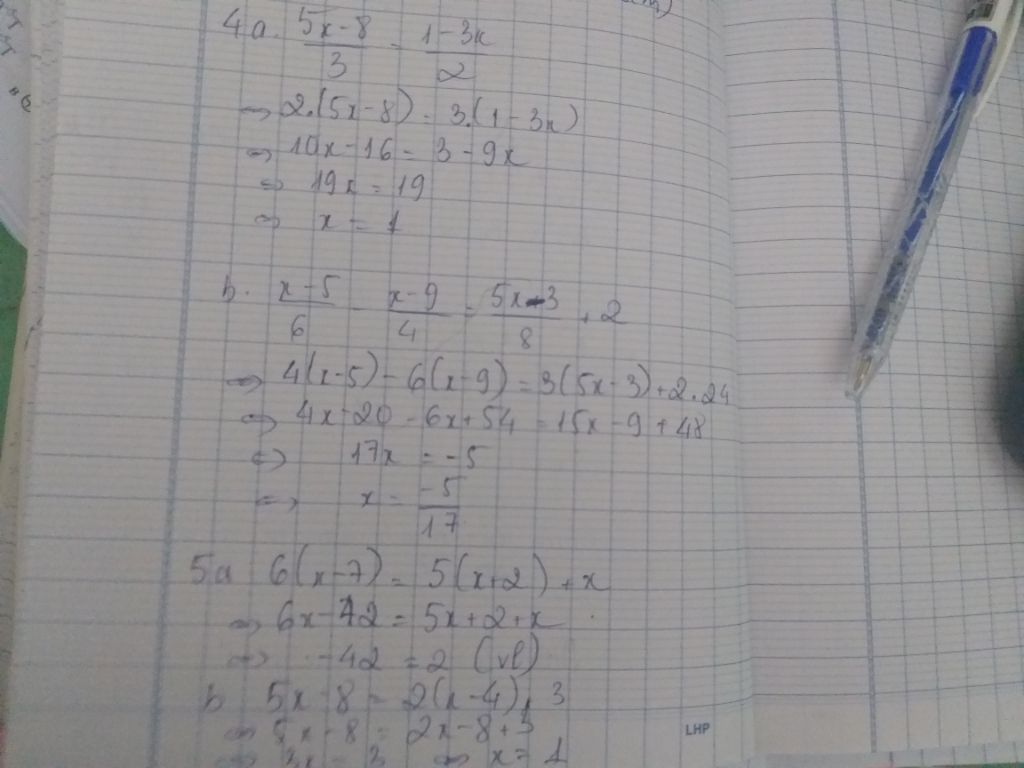 4a. (5x-8)/3 = (1-3x)/2
⇔ 2.(5x-8) = 3.(1-3x)
⇔ 10x-16 = 3-9x
⇔ 19x = 19
⇔ x = 1
b. (x-5)/6 - (x-9)/4 = (5x-3)/8 + 2
⇔ 4(x-5) - 6(x-9) = 3(5x-3) + 2.24
⇔ 4x-20-6x+54 = 15x-9+48
⇔ 17x = -5
⇔ x = -5/17
5a 6(x-7) = 5(x+2) + x
⇔ 6x-42 = 5x+2+x
⇔ -42 = 2 (vl)
b 5x-8 = 2(x-4)+3
⇔ 5x-8 = 2x-8+3
⇔ 3x = 3 ⇔ x = 1
LHP